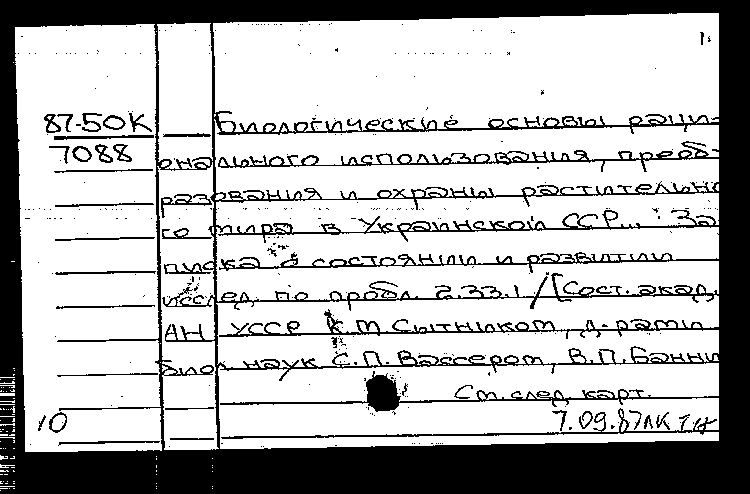 87-50К Биологические основы раци-
7088 онального использования, преоб-
разования и охраны растительно
го мира в Украинской ССР... : За
писка о состоянии и развитии
исслед. по пробл. 2.33.1 / [Сост. акад.
АН УССР К.М. Сытником, д-рами
биол. наук С.П. Вассером, В.П. Банни
См. след. карт.
10 7.09.87